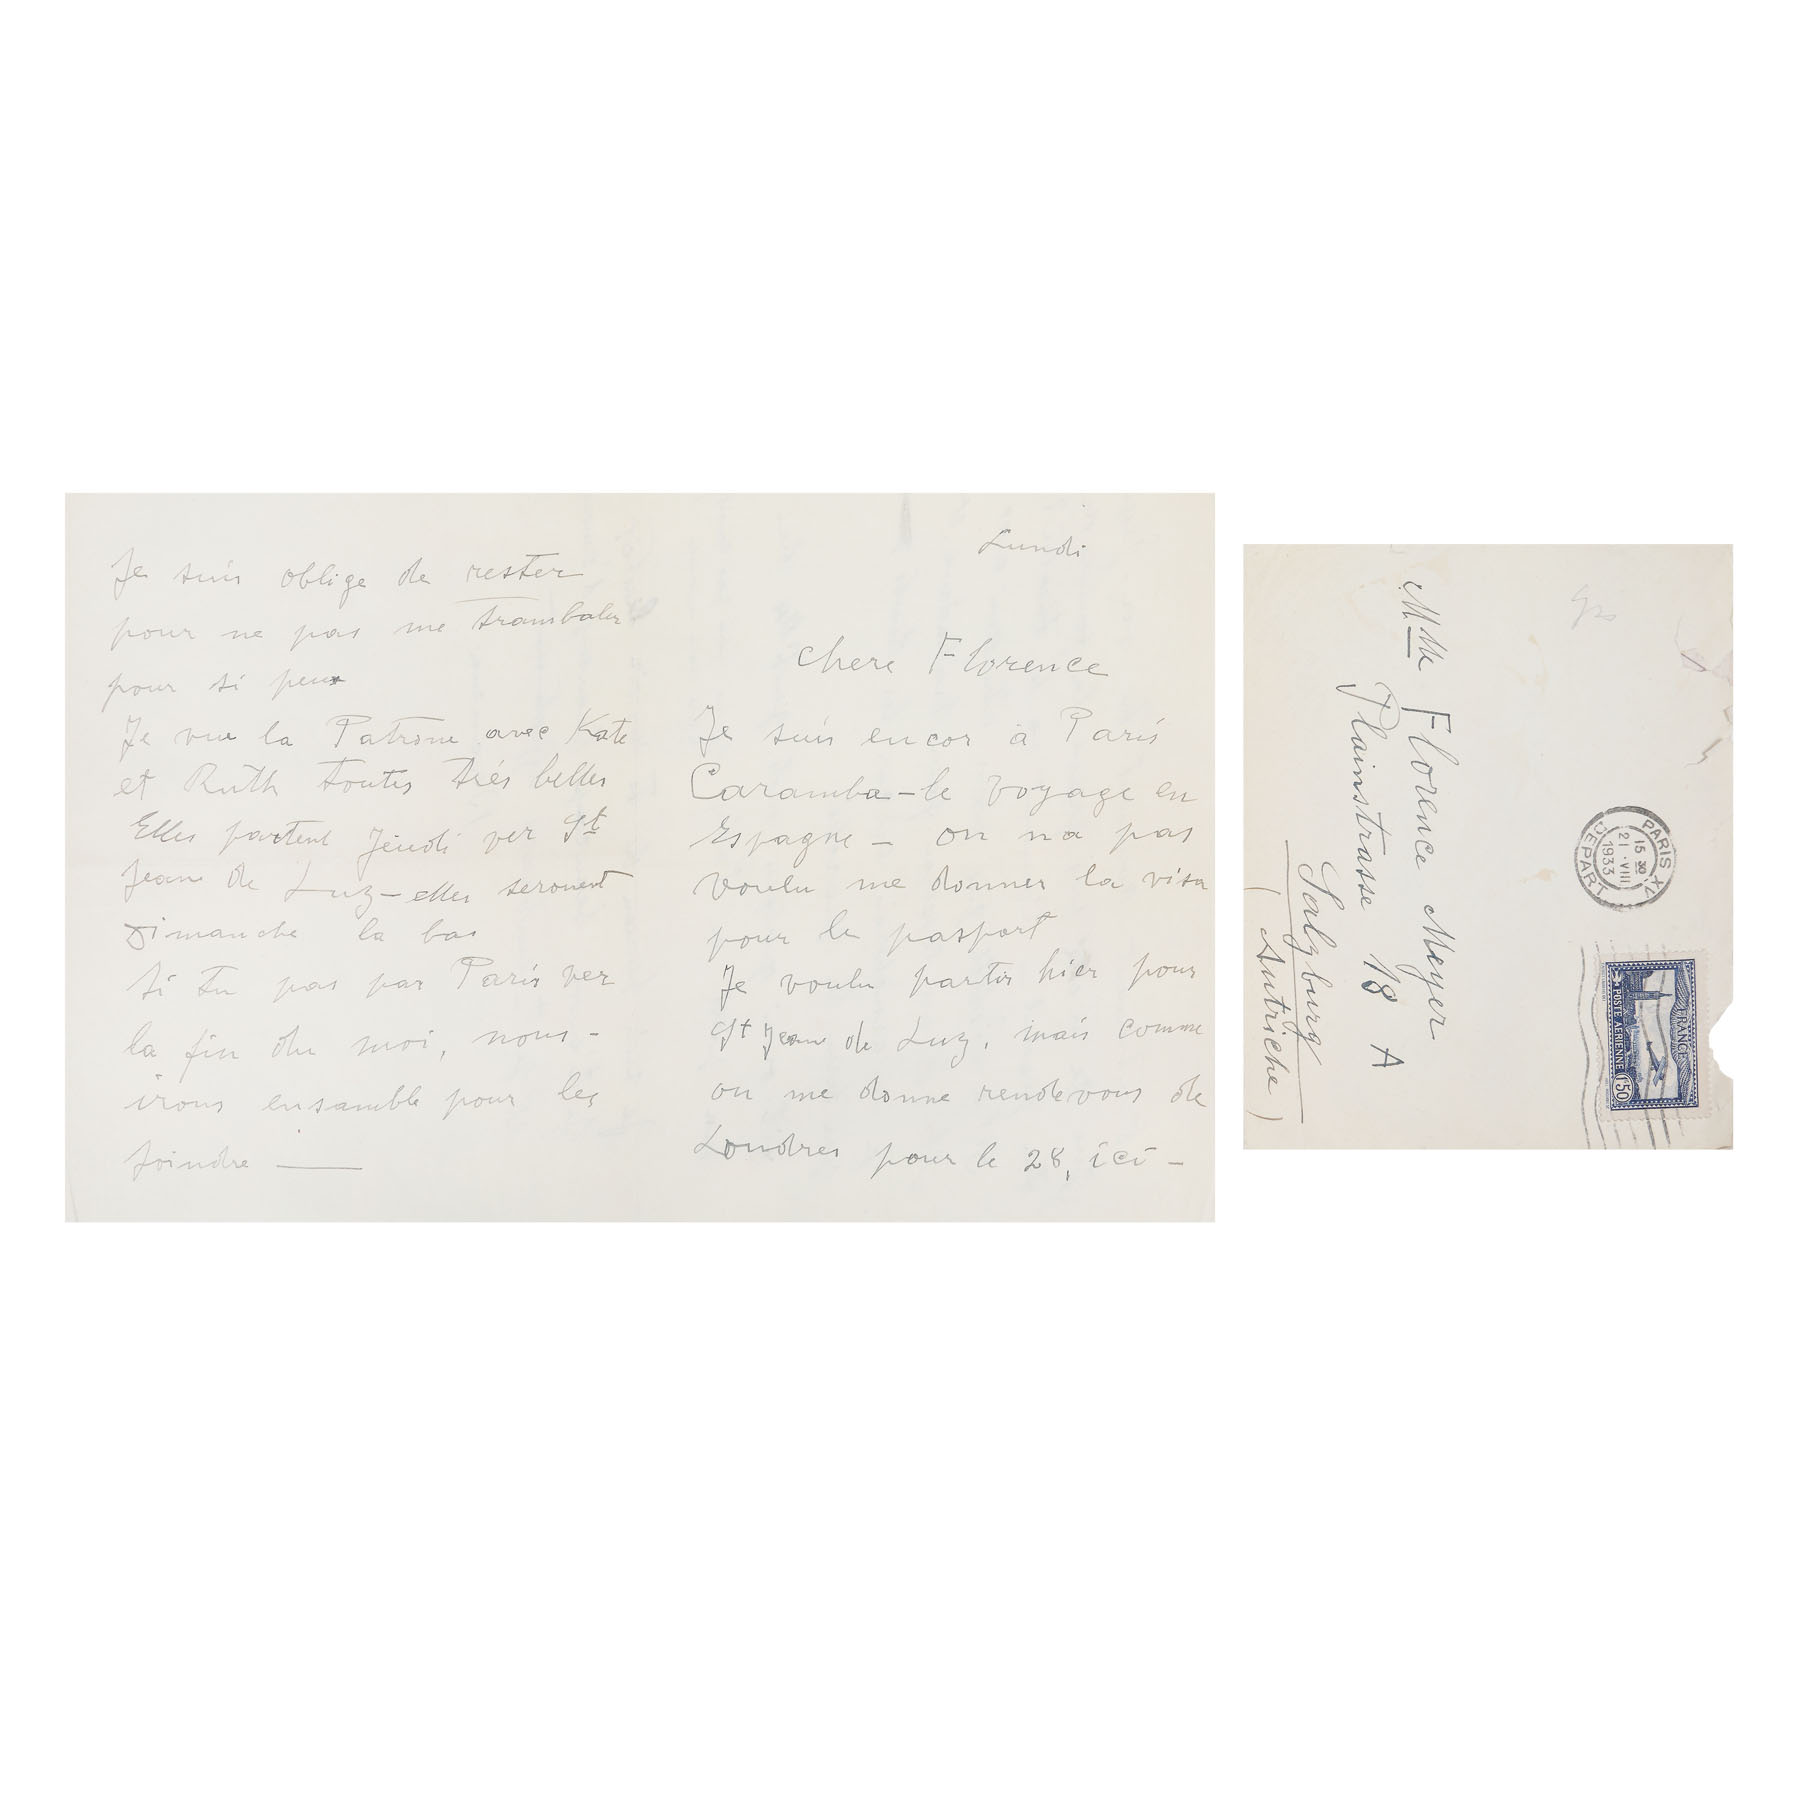 Lundi
Chere Florence
Je suis encor à Paris
Caramba – le voyage en
Espagne – on na pas
voulu me donner la visa
pour le pasport
Je voulu partir hier pour
St Jean de Luz, mais comme
on me donne rendevous de
Londres pour le 28, ici –
Je suis oblige de rester
pour ne pas me trambaler
pour si peu
Je vue la Patrone avec Kate
et Ruth toutes trés belles
Elles partent Jeudi ver St
Jean de Luz – elles seronent
Dimanche la bas
Si tu pas par Paris ver
la fin du moi, nous –
irons ensamble pour les
joindre —
Mlle Florence Meyer
Plainstrasse 18 A
Salzburg
(Autriche)
PARIS XV
15 30
21 · VIII
1933
DEPART
FRANCE
POSTE AERIENNE
1F50